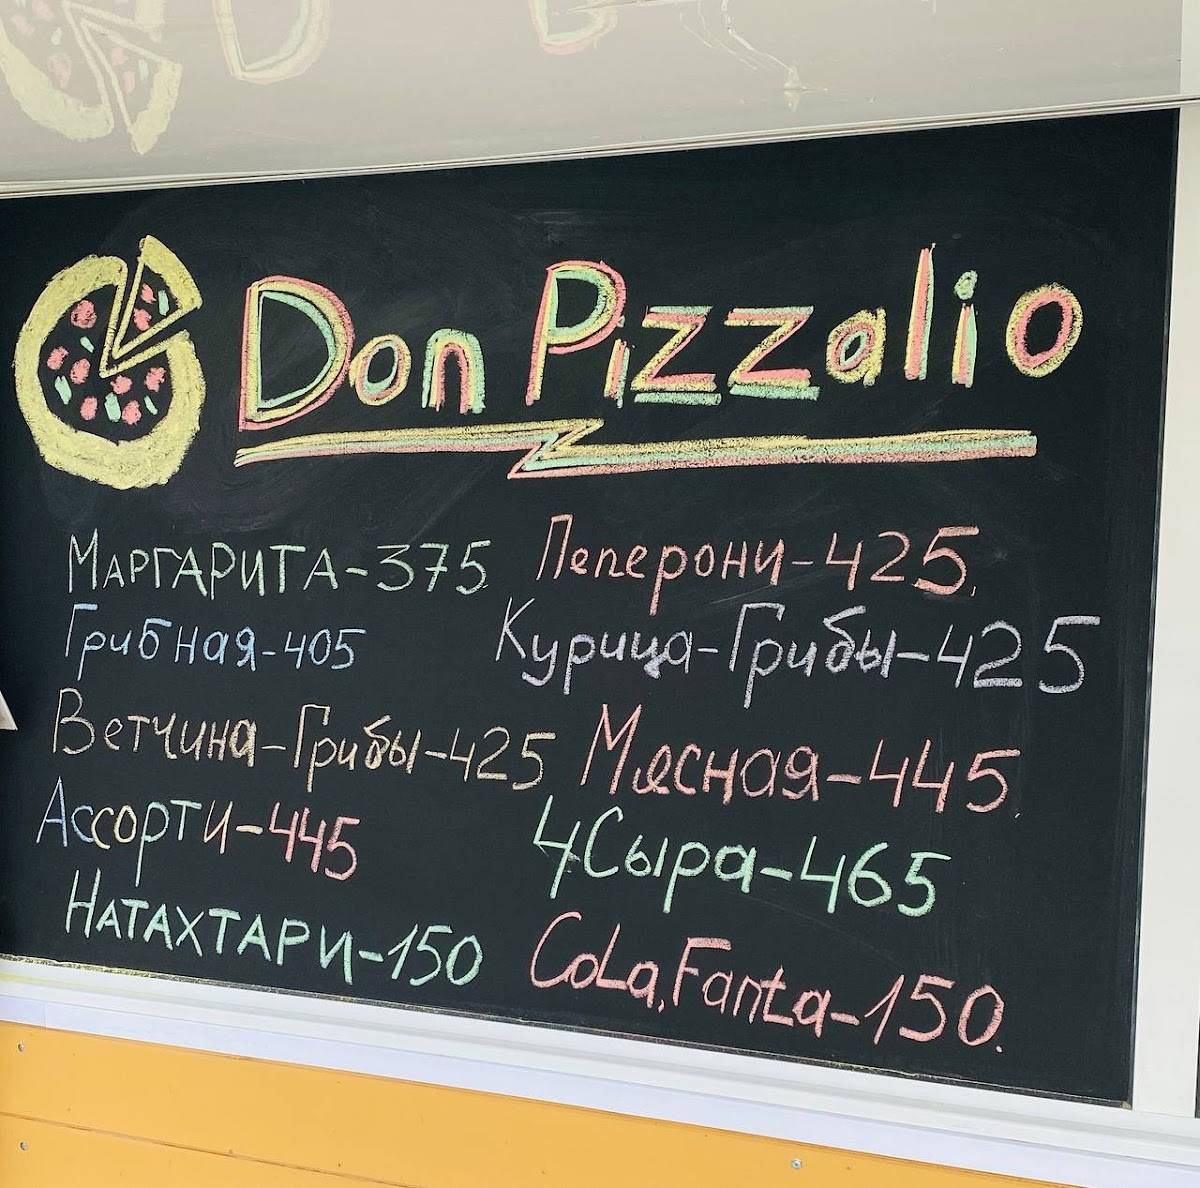 Don Pizzalio
Маргарита-375
Пеперони-425.
Грибная-405
Курица-Грибы-425
Ветчина-Грибы-425
Мясная-445.
Ассорти-445
4 Сыра-465
Натахтари-150
CoLa, Fanta-150.